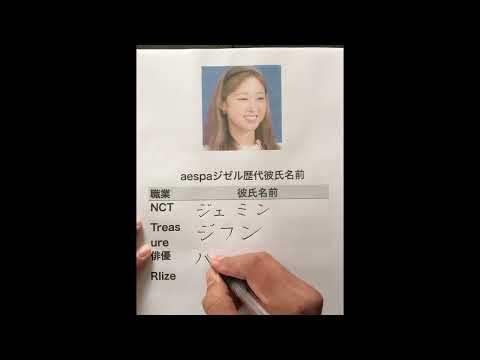 aespaジゼル歴代彼氏名前
職業 彼氏名前
NCT ジェミン
Treas ジフン
ure
俳優 ハ
RIize